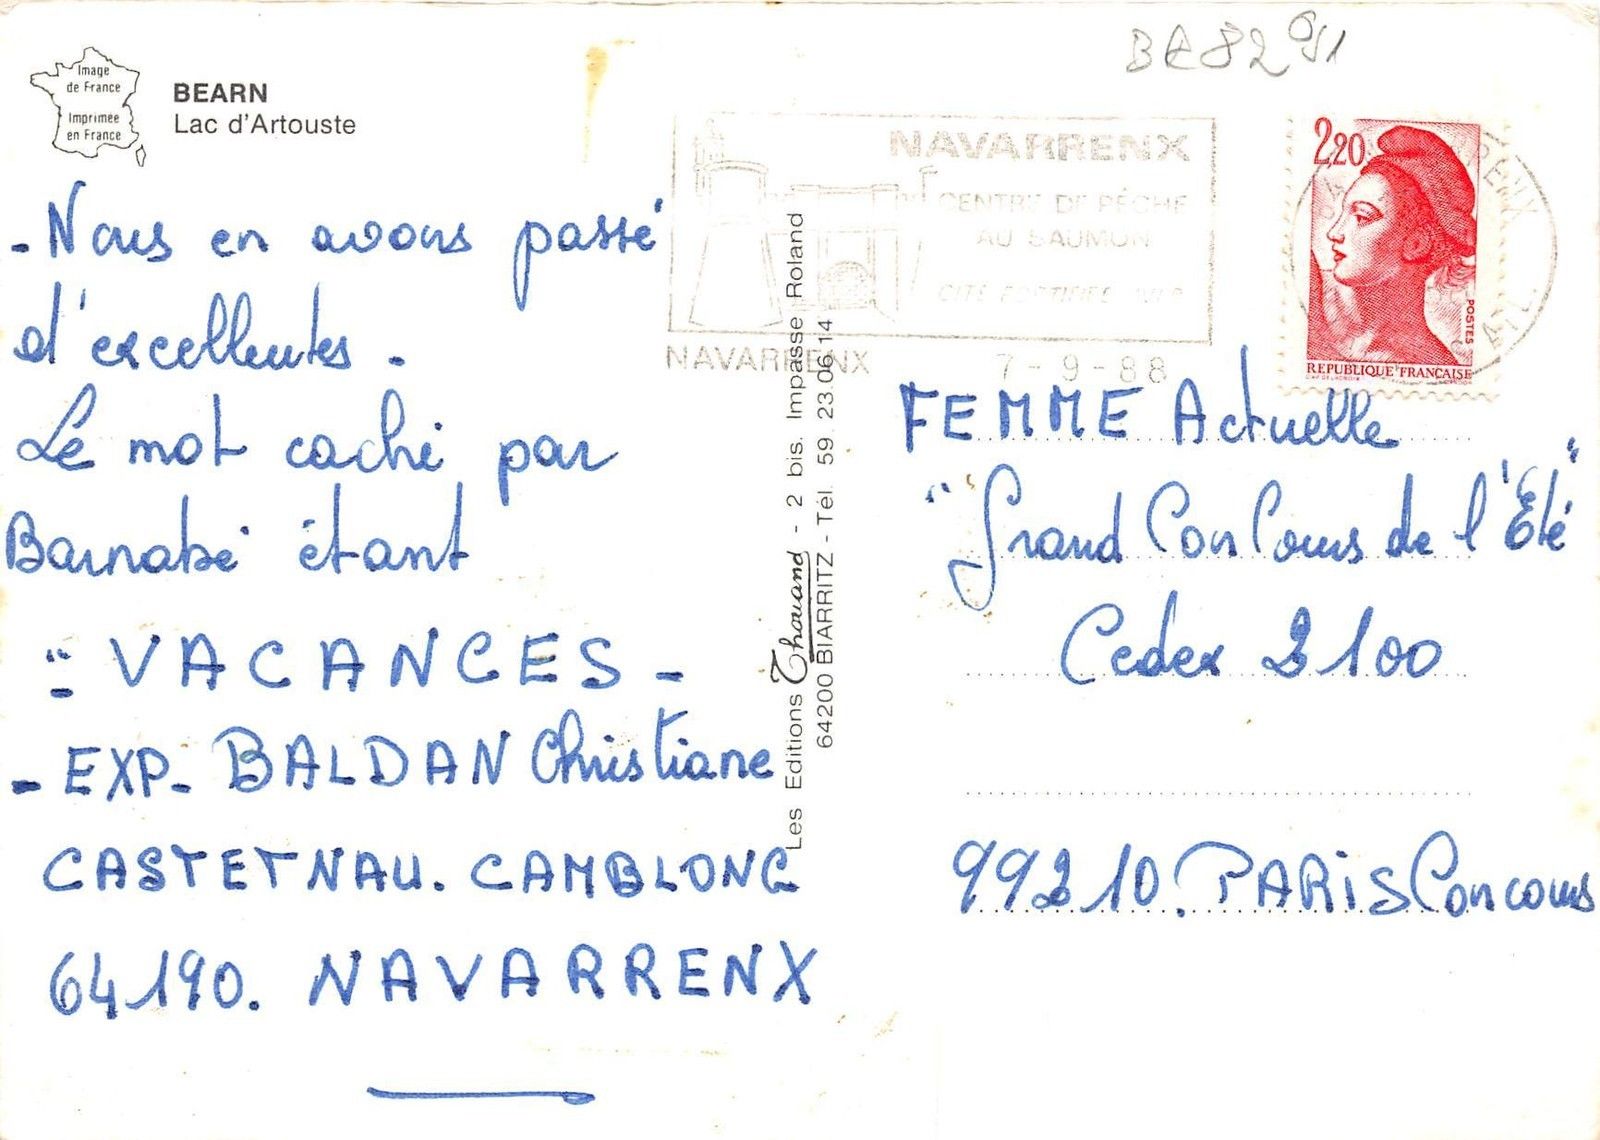 BE 82 
Image
de France
Imprimée
en France
BEARN
Lac d'Artouste
- Nous en avons passé
d'excellentes -
Le mot caché par
Barnabé étant
" VACANCES -
- EXP - BALDAN Christiane
CASTETNAU. CAMBLONG
64190. NAVARRENX
Les Editions Thouand - 2 bis. Impasse Roland
64200 BIARRITZ - Tél. 59 23.06.14
NAVARRENX
CENTRE DE PÊCHE
AU SAUMON
CITE FORTIFIEE
NAVARRENX
7 - 9 - 88
2,20
POSTES
REPUBLIQUE FRANÇAISE
FEMME Actuelle
"Grand Concours de l'Eté"
Cedex 2100
99210. PARIS Concours